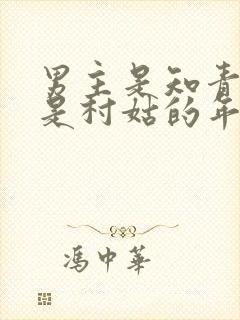 男主是知青
是村姑的年
冯中华